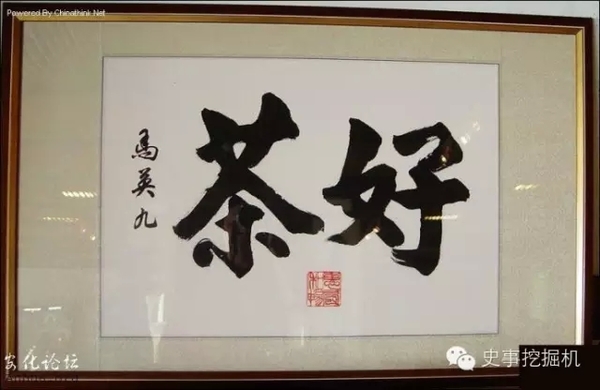 Powered By Chinathink.Net
好茶
馬英九
安化论坛
史事挖掘机